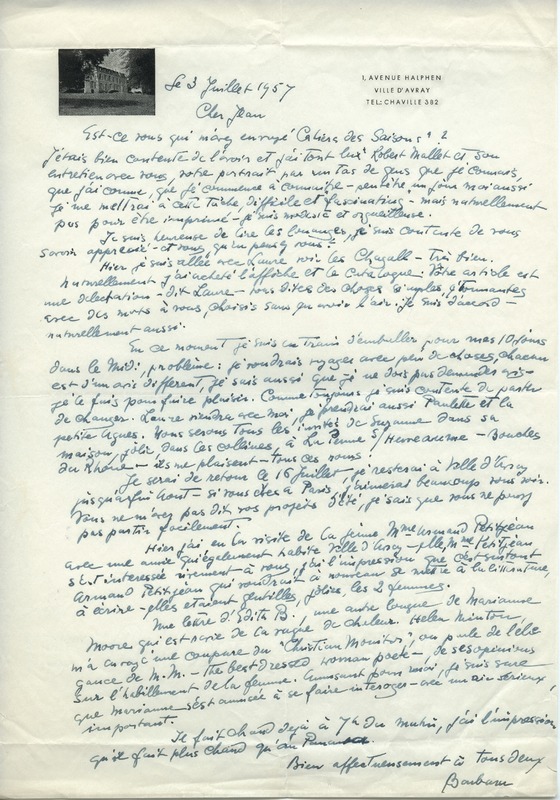 1, AVENUE HALPHEN
VILLE D'AVRAY
TEL: CHAVILLE 382
Le 3 Juillet 1957
Cher Jean
Est-ce vous qui m'avez envoyé Cahiers des Saisons ?
J'étais bien contente de l'avoir et j'ai tout lu. Robert Mallet et son
entretien avec vous, votre portrait par un tas de gens que je connais,
que j'ai connu, que je commence à connaître - peut être un jour moi aussi
je me mettrai à cette tâche difficile et fascinating - mais naturellement
pas pour être imprimé - je suis modeste et orgueilleuse.
Je suis heureuse de lire les louanges, je suis contente de vous
savoir apprécié - et vous, qu'en pensez vous ?
Hier je suis allée avec Laure voir les Chagall - Très bien.
Naturellement j'ai acheté l'affiche et le Catalogue. Votre article est
une délectation - dit Laure - vous dites des choses simples, étonnantes
avec des mots à vous, choisis sans en avoir l'air. Je suis d'accord -
naturellement aussi.
En ce moment je suis en train d'emballer pour mes 10 jours
dans le Midi, problème: je voudrais voyager avec peu de choses, chacun
est d'un avis différent, je sais aussi que je ne dois pas demander
je le fais pour faire plaisir. Comme toujours je suis contente de partir
de changer. Laure viendra avec moi, je prendrai aussi Paulette et la
petite Agnes. Nous serons tous les invités de Suzanne dans sa
maison, jolie dans les collines, à La Penne s/ Huveaume - Bouches
du Rhône - ils me plaisent - tous ces nous.
Je serai de retour le 16 Juillet, je resterai à Ville d'Avray
jusqu'a fin Aout - si vous êtes à Paris, j'aimerai beaucoup vous voir.
Vous ne m'avez pas dit vos projets d'été, je sais que vous ne pouvez
pas partir facilement.
Hier j'ai eu la visite de la jeune Mme Armand Petitjean
avec une amie qui également habite Ville d'Avray - elle, Mme Petitjean
s'est interessée vivement à vous, j'ai l'impression que c'est surtout
Armand Petitjean qui voudrait à nouveau se mettre à la littérature,
à écrire - elles étaient gentilles, jolies, les 2 femmes.
Une lettre d'Edith B., une autre longue de Marianne
Moore qui est ravie de la vague de chaleur. Helen Ninton
m'a envoyé une coupure du "Christian Monitor", on parle de l'élé
gance de M.M. - the best dressed woman poete -, de ses opinions
sur l'habillement de la femme. Amusant pour moi, je suis sure
que Marianne s'est amusée à se faire interoger - avec un air sérieux
important.
Il fait chaud déjà à 7h du matin, j'ai l'impression
qu'il fait plus chaud qu'au Panama.
Bien affectueusement à tous deux
Barbara